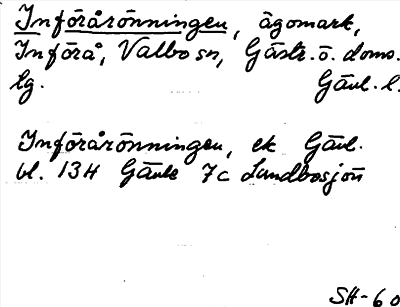 Införårönningen, ägomark,
Införå, Valbo sn, Gästr. ö. doms.
lg. Gävl. l.
Införårönningen, ek Gävl.
bl. 13H Gävle 7c Lundbosjön
SH-60